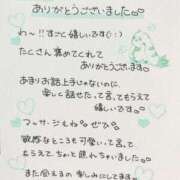 ありがとうございました
わ〜!!すっごく嬉しいです(:;)
たくさん褒めてくれて
ありがとうございます
あまりお話上手じゃないのに、
楽しく話せた、って言ってもらえて
嬉しいです
マッサージもぜひ
敏感なところも可愛いって、言って
もらえてちょっと照れちゃいました
また会えるの楽しみにしてます